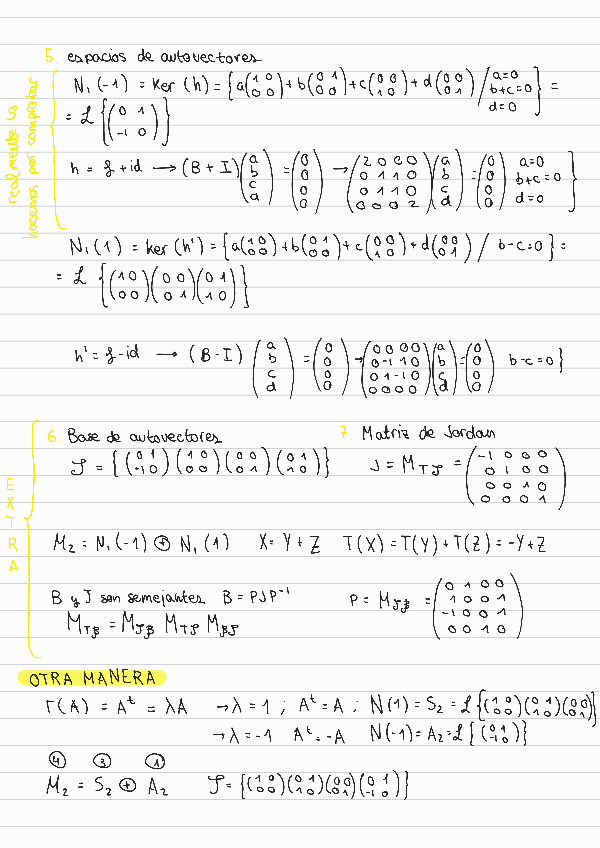 5. espacios de autovectores
realmente lo hacemos por comprobar
N₁(-1) = Ker (h) = {a(1 0 / 0 0) + b(0 1 / 0 0) + c(0 0 / 1 0) + d(0 0 / 0 1) / a=0 b+c=0 d=0} =
= L {(0 1 / -1 0)}
h = f + id → (B + I)(a b c d) = (0 0 0 0) → (2 0 0 0 / 0 1 1 0 / 0 1 1 0 / 0 0 0 2)(a b c d) = (0 0 0 0) a=0 b+c=0 d=0}
N₁(1) = Ker (h') = {a(1 0 / 0 0) + b(0 1 / 0 0) + c(0 0 / 1 0) + d(0 0 / 0 1) / b-c=0} =
= L {(1 0 / 0 0)(0 0 / 0 1)(0 1 / 1 0)}
h' = f - id → (B - I)(a b c d) = (0 0 0 0) → (0 0 0 0 / 0 -1 1 0 / 0 1 -1 0 / 0 0 0 0)(a b c d) = (0 0 0 0) b-c=0}
EXTRA
6. Base de autovectores 7. Matriz de Jordan
J = {(0 1 / -1 0)(1 0 / 0 0)(0 0 / 0 1)(0 1 / 1 0)} J = M_TJ = (-1 0 0 0 / 0 1 0 0 / 0 0 1 0 / 0 0 0 1)
M₂ = N₁(-1) ⊕ N₁(1) X = Y + Z T(X) = T(Y) + T(Z) = -Y + Z
B y J son semejantes B = PJP⁻¹ P = M_JB = (0 1 0 0 / 1 0 0 1 / -1 0 0 1 / 0 0 1 0)
M_TB = M_JB M_TJ M_BJ
OTRA MANERA
T(A) = Aᵗ = λA → λ = 1 ; Aᵗ = A ; N(1) = S₂ = L {(1 0 / 0 0)(0 1 / 1 0)(0 0 / 0 1)}
→ λ = -1 Aᵗ = -A N(-1) = A₂ = L {(0 1 / -1 0)}
④ ③ ①
M₂ = S₂ ⊕ A₂ J = {(1 0 / 0 0)(0 1 / 1 0)(0 0 / 0 1)(0 1 / -1 0)}